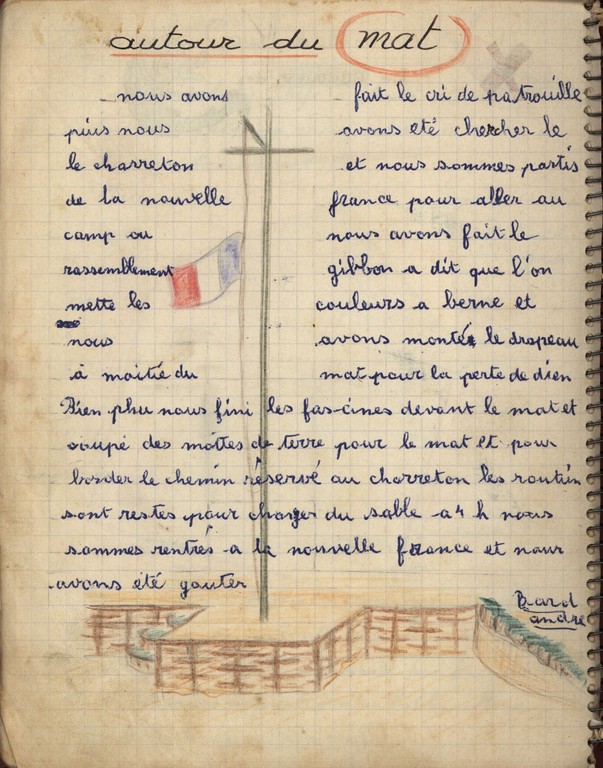 autour du mat
nous avons fait le cri de patrouille
puis nous avons été chercher le
le charreton et nous sommes partis
de la nouvelle france pour aller au
camp ou nous avons fait le
rassemblement gibbon a dit que l'on
mette les couleurs a berne et
nous avons montée le drapeau
à moitié du mat pour la perte de dien
Bien phu nous fini les fas-cines devant le mat et
coupé des mottes de terre pour le mat et pour
border le chemin réservé au charreton les routin
sont restés pour charger du sable a 4 h nous
sommes rentrés a la nouvelle france et nour
avons été gouter
Bard
andré